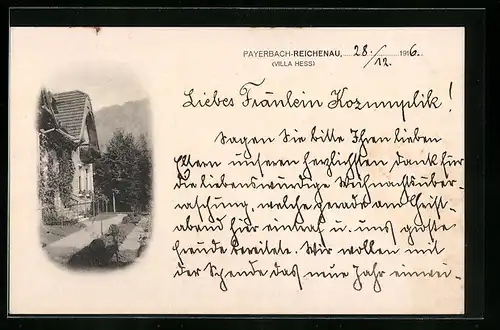 PAYERBACH-REICHENAU, 28./12. 1916.
(VILLA HESS)
Liebes Fräulein Kozumplik!
Sagen Sie bitte Ihren lieben
Eltern unseren herzlichsten Dank für
die liebenswürdige Weihnachtsüber-
raschung, welche gerade am Christ-
abend hier eintraf u. uns große
Freude bereitete. Wir wollen mit
der Spende das neue Jahr einwei-